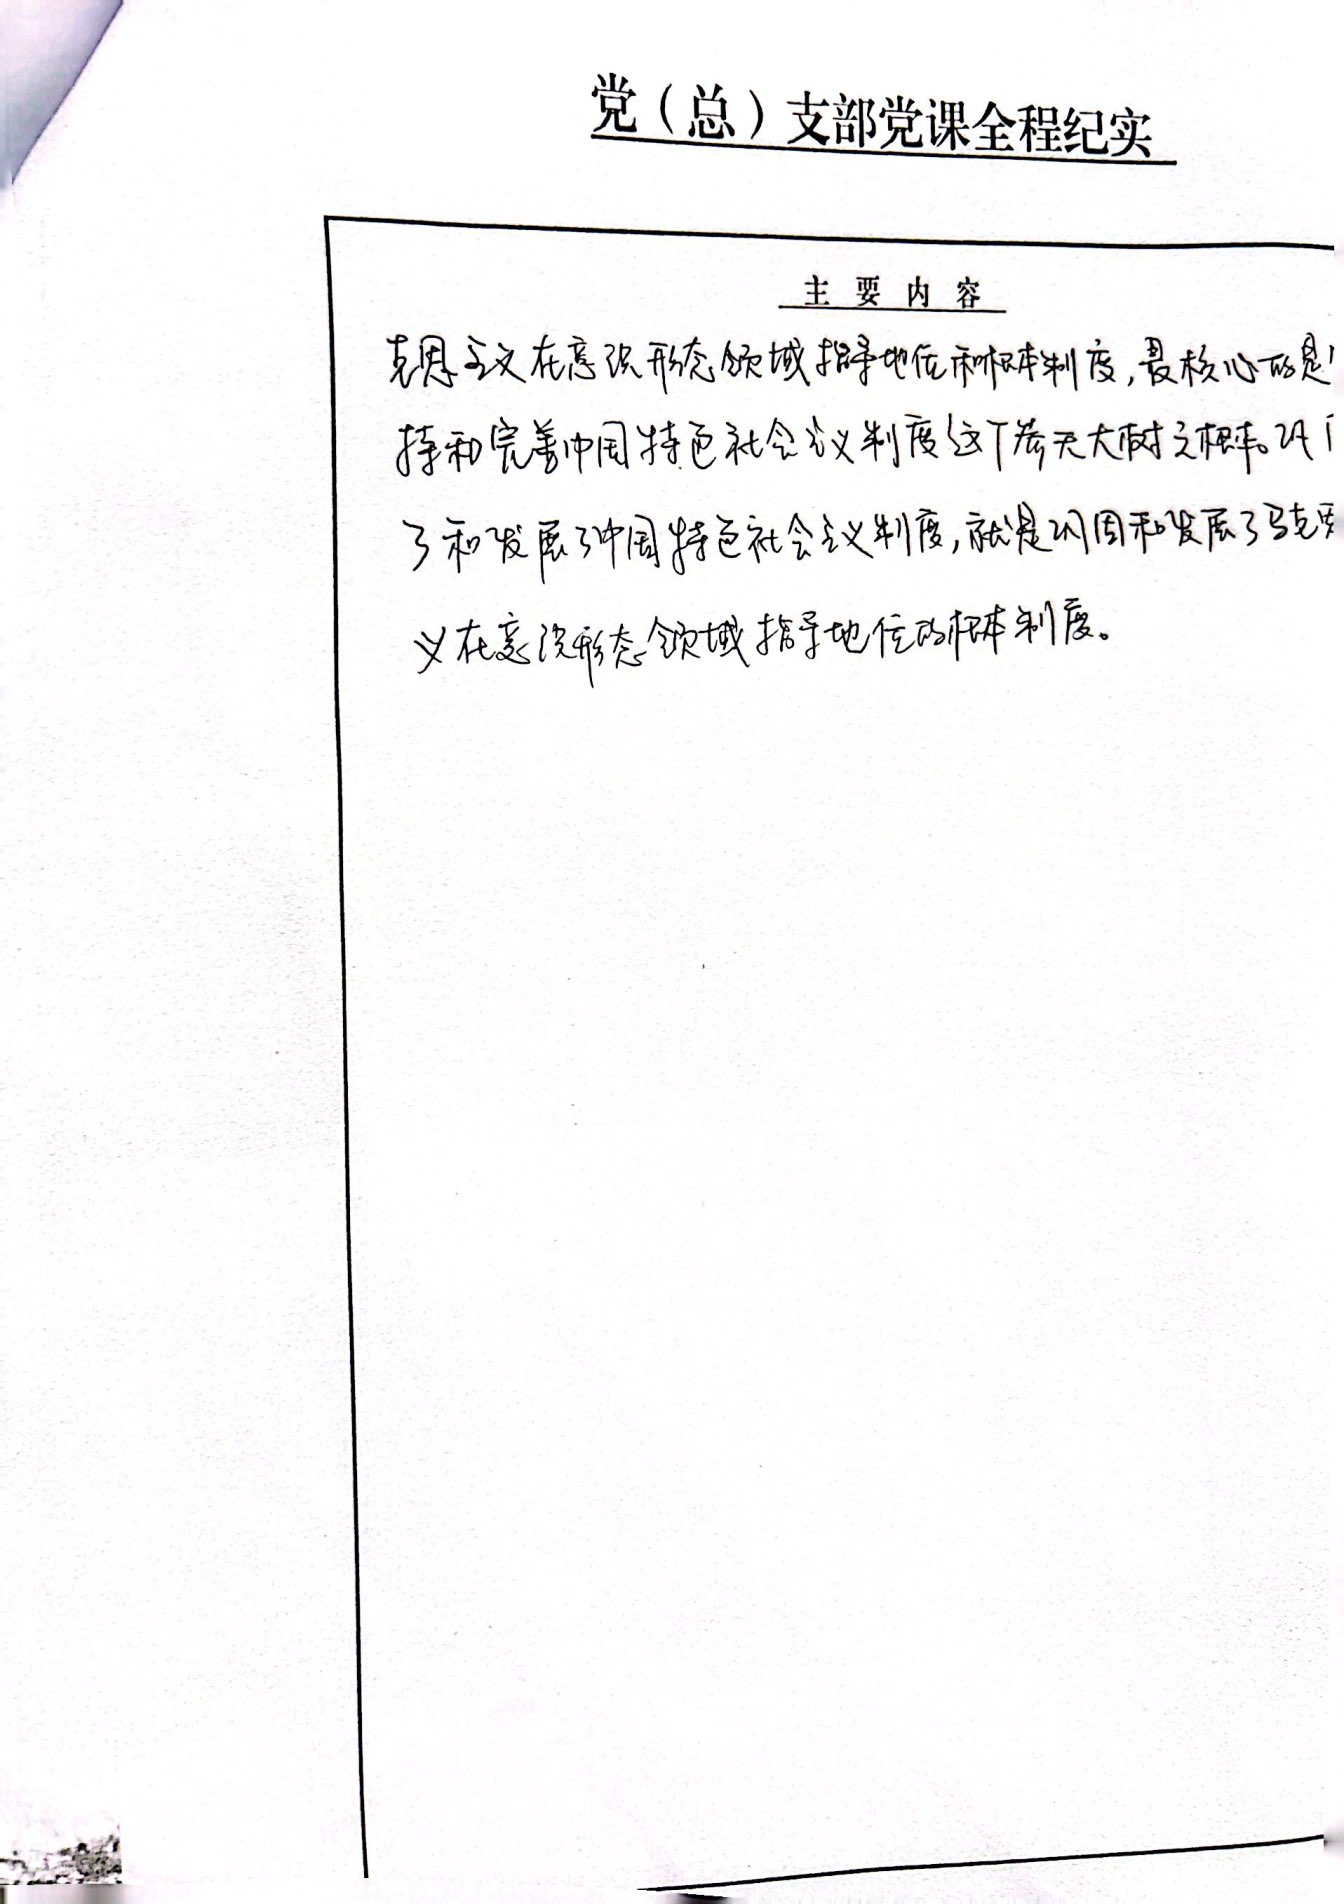 党（总）支部党课全程纪实
主要内容
克思主义在意识形态领域指导地位和根本制度，最核心的是
持和完善中国特色社会主义制度这个参天大树之根本。巩
了和发展了中国特色社会主义制度，就是巩固和发展了马克思
义在意识形态领域指导地位的根本制度。